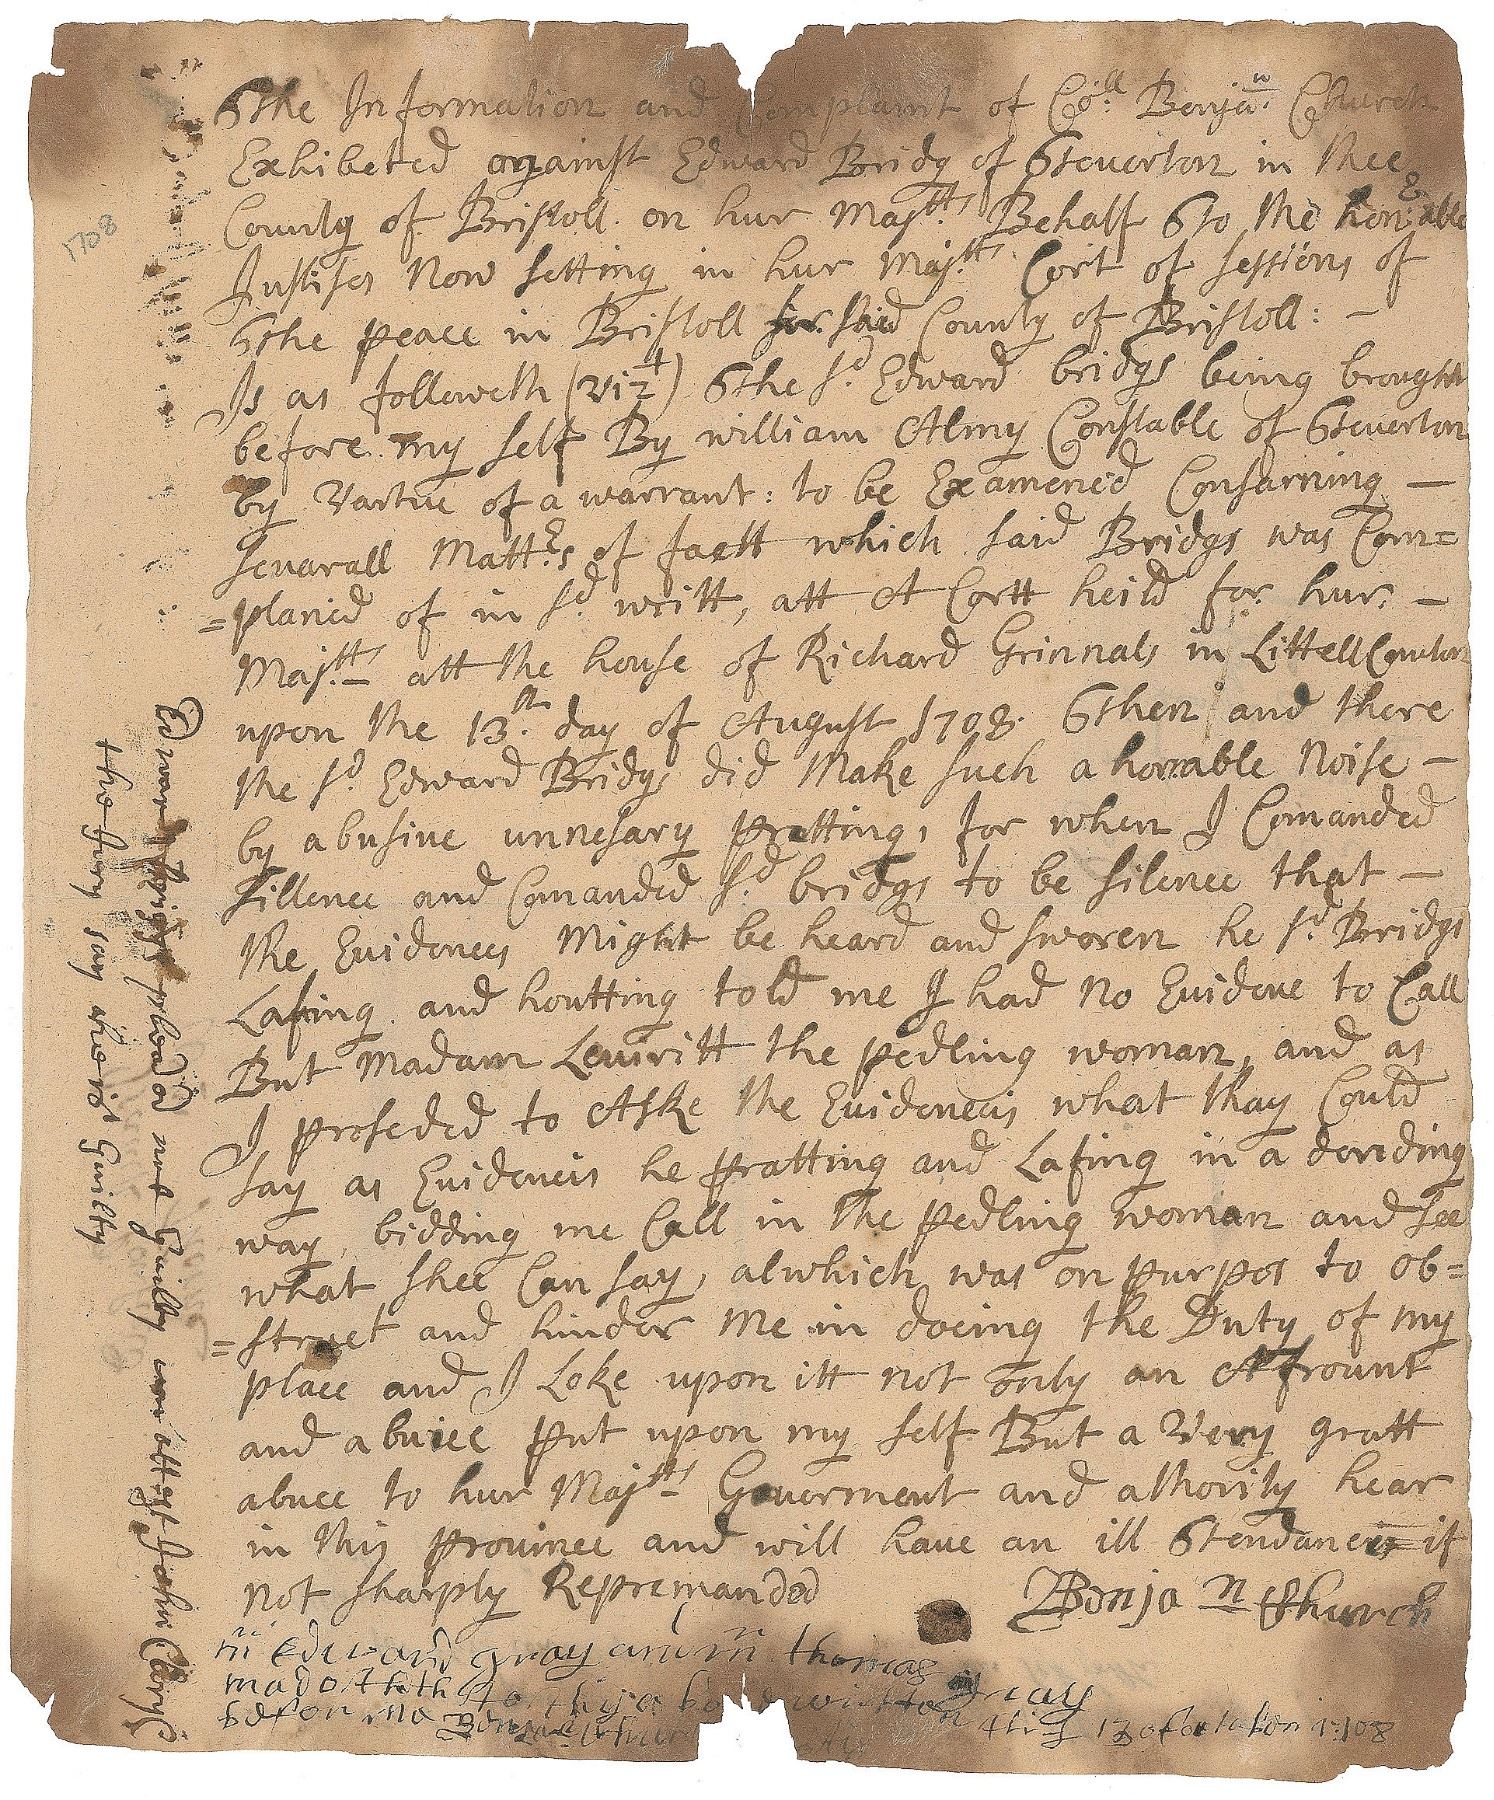 The Information and Complaint of Coll. Benjan. Church
Exhibeted against Edward Bridg of Teuerton in thee
County of Bristoll on hur Majtts. Behalf To the honrable
Justises Now setting in hur Majtts. Cort of sessions of
the peace in Bristoll for said County of Bristoll: –
Is as followeth (vizt) the sd Edward bridgs being brought
before my self By william Almy Constable of Teuerton
by vartue of a warrant: to be Examened Consarning –
seuarall Mattrs of factt which said Bridgs was Com=
=planed of in sd writt, att A Cortt heild for hur. –
Majtts. att the house of Richard Grinnals in Littell Comton
upon the 13th day of August 1708. Then and there
the sd Edward Bridgs did Make such a horrable Noise –
by abusive unnesary pratting, for when I Comanded
sillence and Comanded sd bridgs to be silence that –
the Euidences Might be heard and sworen he sd Bridgs
Lafing and houtting told me I had No Euidence to Call
But Madam Leuiritt the pedling woman, and as
I proseded to Aske the Euidenceis what thay Could
say as Euidenceis he pratting and Lafing in a deriding
way, bidding me Call in the pedling woman and see
what shee Can say, alwhich was on purpos to ob=
=struct and hinder Me in doeing the Duty of my
place and I Loke upon itt not only an Afrount
and abuice put upon my self But a Very gratt
abuce to hur Majtts Gouerment and athority hear
in this prouince and will have an ill Tendance if
Not sharply Repremanded
Benja n Church
mr Edward gray and mr thomas gray
mad othth to this a boue written
befor me Benja Church this 13 of october 1708
Edward bridgs pleads not Guilty attst John Cary
the Jury say he is Guilty
1708